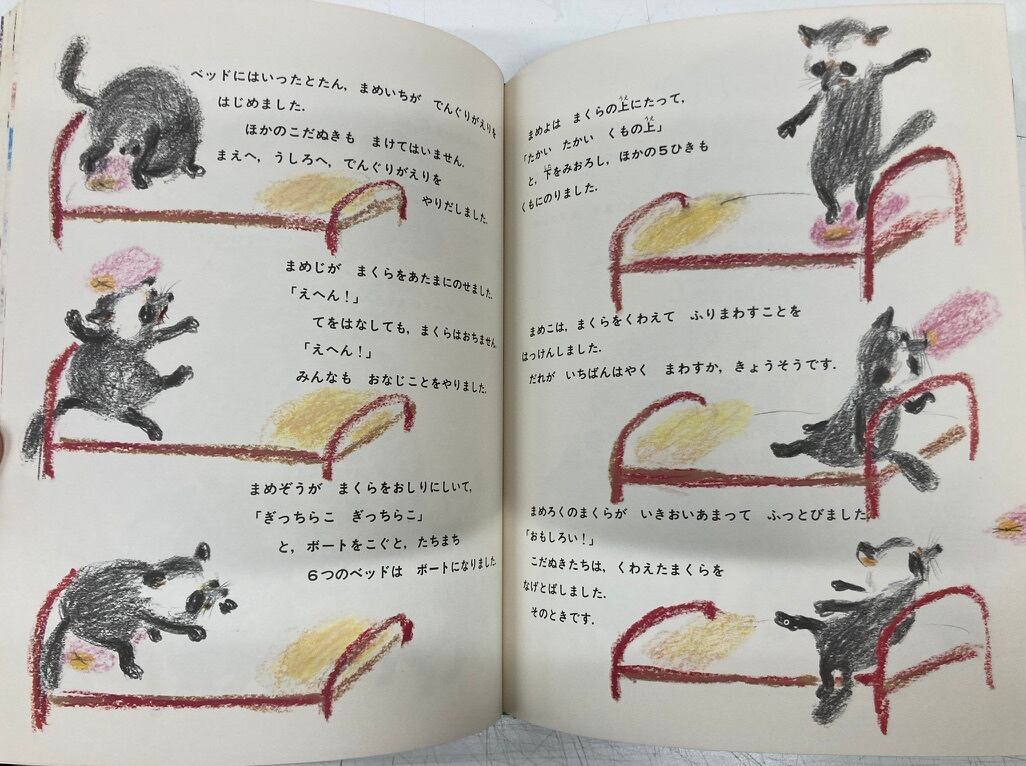 ベッドにはいったとたん，まめいちが でんぐりがえりを
はじめました．
ほかのこだぬきも まけてはいません．
まえへ，うしろへ，でんぐりがえりを
やりだしました．
まめじが まくらをあたまにのせました．
「えへん！」
てをはなしても，まくらはおちません．
「えへん！」
みんなも おなじことをやりました．
まめぞうが まくらをおしりにしいて，
「ぎっちらこ ぎっちらこ」
と，ボートをこぐと，たちまち
６つのベッドは ボートになりました．
まめよは まくらの上にたって，
「たかい たかい くもの上」
と，下をみおろし，ほかの５ひきも
くもにのりました．
まめこは，まくらをくわえて ふりまわすことを
はっけんしました．
だれが いちばんはやく まわすか，きょうそうです．
まめろくのまくらが いきおいあまって ふっとびました．
「おもしろい！」
こだぬきたちは，くわえたまくらを
なげとばしました．
そのときです．